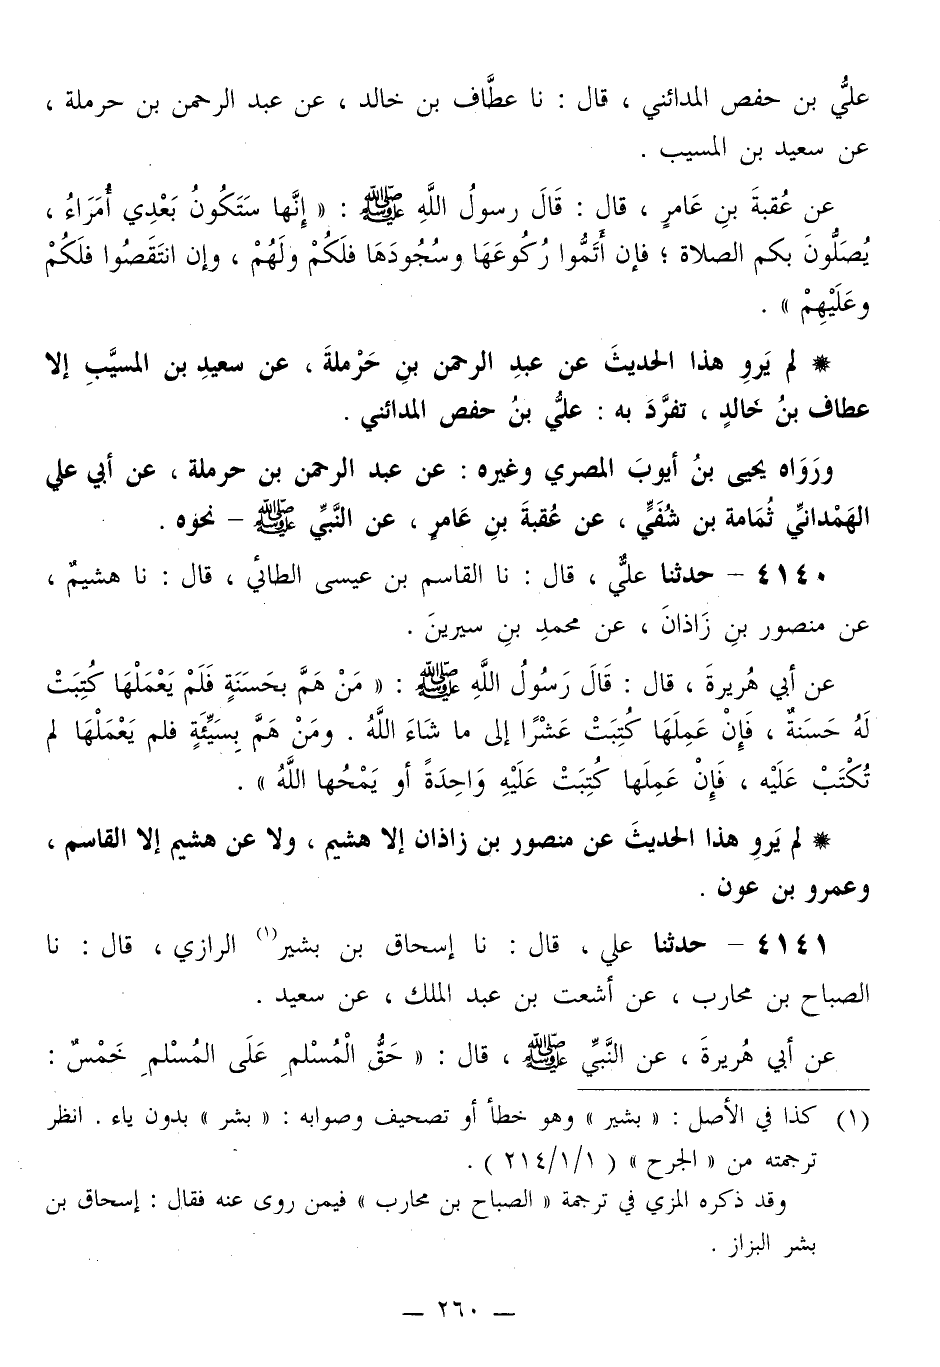 عليُّ بن حفص المدائني ، قال : نا عطَّاف بن خالد ، عن عبد الرحمن بن حرملة ،
عن سعيد بن المسيب .
عن عُقبةَ بنِ عامرٍ ، قال : قَالَ رسولُ اللَّهِ ﷺ : « إِنَّها سَتَكُونُ بَعْدِي أُمَرَاءُ ،
يُصَلُّونَ بكم الصلاة ؛ فإن أَتَمُّوا رُكُوعَهَا وسُجُودَهَا فلَكُمْ ولَهُمْ ، وإن انتَقَصُوا فلَكُمْ
وعَلَيْهِمْ » .
* لم يَروِ هذا الحديثَ عن عبدِ الرحمن بنِ حَرْملةَ ، عن سعيدِ بن المسيَّبِ إلا
عطاف بنُ خَالدٍ ، تفرَّدَ به : عليُّ بنُ حفص المدائني .
ورَوَاه يحيى بنُ أيوبَ المصري وغيره : عن عبد الرحمن بن حرملة ، عن أبي علي
الهَمْدانيِّ ثُمَامة بن شُفَيٍّ ، عن عُقبةَ بنِ عَامرٍ ، عن النَّبيِّ ﷺ – نحوَه .
٤١٤٠ – حدثنا عليٌّ ، قال : نا القاسم بن عيسى الطائي ، قال : نا هشيمٌ ،
عن منصور بنِ زَاذانَ ، عن محمدِ بنِ سيرينَ .
عن أبي هُريرةَ ، قال : قَالَ رَسُولُ اللَّهِ ﷺ : « مَنْ هَمَّ بحَسَنَةٍ فَلَمْ يَعْمَلْهَا كُتِبَتْ
لَهُ حَسَنةٌ ، فَإِنْ عَمِلَهَا كُتِبَتْ عَشْرًا إلى ما شَاءَ اللَّهُ . ومَنْ هَمَّ بِسَيِّئَةٍ فلم يَعْمَلْهَا لم
تُكْتَبْ عَلَيْه ، فَإِنْ عَمِلَها كُتِبَتْ عَلَيْهِ وَاحِدَةً أو يَمْحُها اللَّهُ » .
* لم يَروِ هذا الحديثَ عن منصور بن زاذان إلا هشيم ، ولا عن هشيم إلا القاسم ،
وعمرو بن عون .
٤١٤١ – حدثنا علي ، قال : نا إسحاق بن بشير(١) الرازي ، قال : نا
الصباح بن محارب ، عن أشعث بن عبد الملك ، عن سعيد .
عن أبي هُريرةَ ، عن النَّبيِّ ﷺ ، قال : « حَقُّ الْمُسْلمِ عَلَى المُسْلمِ خَمْسٌ :
(١) كذا في الأصل : « بشير » وهو خطأ أو تصحيف وصوابه : « بشر » بدون ياء . انظر
ترجمته من « الجرح » ( ٢١٤/١/١ ) .
وقد ذكره المزي في ترجمة « الصباح بن محارب » فيمن روى عنه فقال : إسحاق بن
بشر البزاز .
— ٢٦٠ —